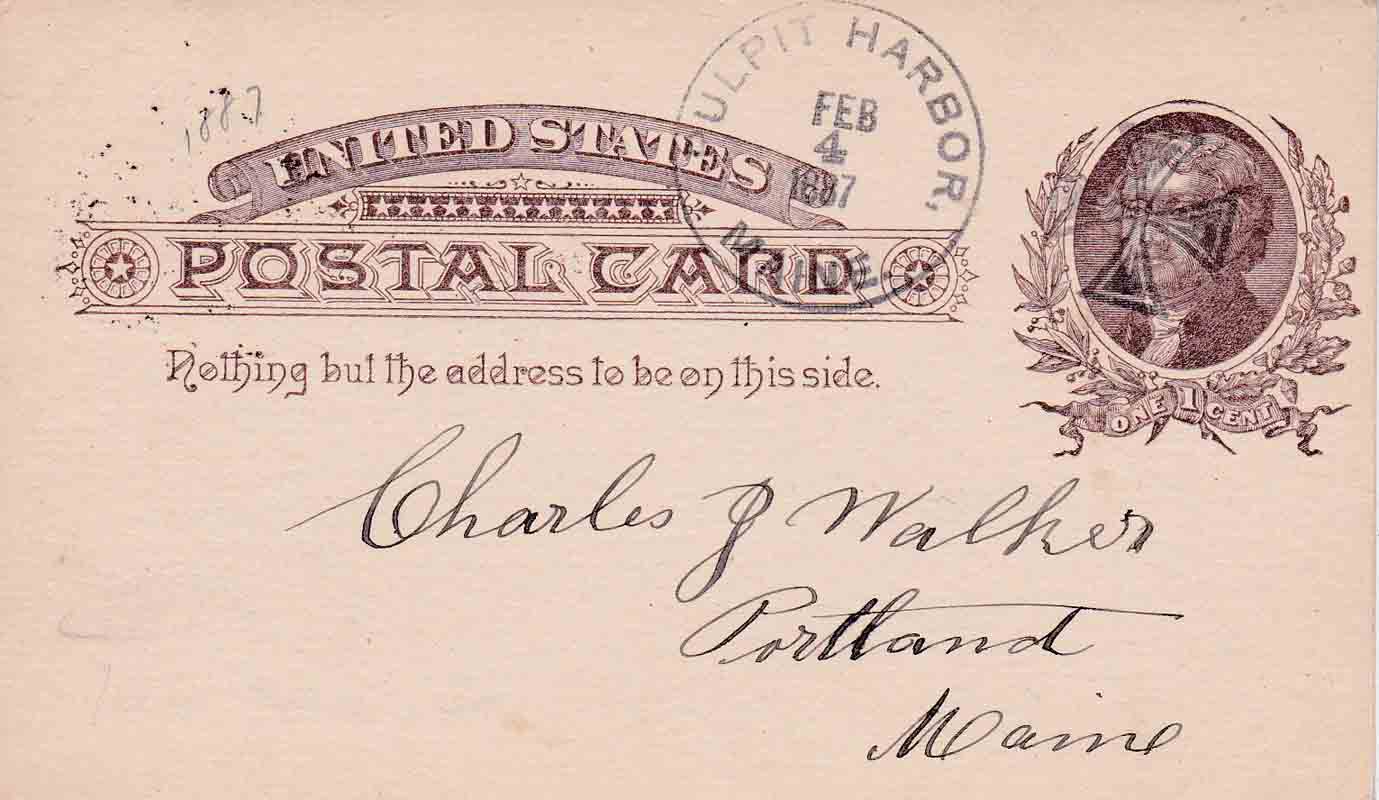 1887
UNITED STATES
POSTAL CARD
Nothing but the address to be on this side.
ULPIT HARBOR,
FEB
4
1887
MAINE.
ONE 1 CENT
Charles J Walker
Portland
Maine